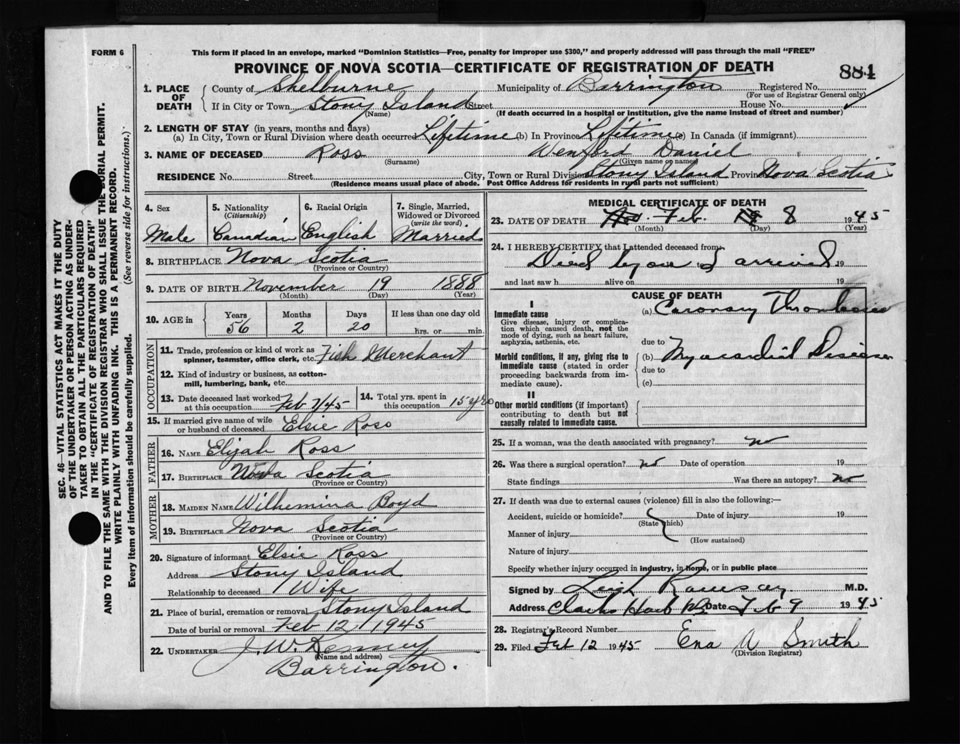 FORM 6
This form if placed in an envelope, marked "Dominion Statistics—Free, penalty for improper use $300," and properly addressed will pass through the mail "FREE"
PROVINCE OF NOVA SCOTIA—CERTIFICATE OF REGISTRATION OF DEATH
884
1. PLACE OF DEATH
County of Shelburne Municipality of Barrington Registered No.
(For use of Registrar General only)
If in City or Town Stony Island Street House No.
(Name) (If death occurred in a hospital or institution, give the name instead of street and number)
2. LENGTH OF STAY (in years, months and days)
(a) In City, Town or Rural Division where death occurred Lifetime (b) In Province Lifetime (c) In Canada (if immigrant)
3. NAME OF DECEASED Ross Wenford Daniel
(Surname) (Given name or names)
RESIDENCE No. Street City, Town or Rural Division Stony Island Province Nova Scotia
(Residence means usual place of abode. Post Office Address for residents in rural parts not sufficient)
SEC. 46—VITAL STATISTICS ACT MAKES IT THE DUTY
OF THE UNDERTAKER OR PERSON ACTING AS UNDER-
TAKER TO OBTAIN ALL THE PARTICULARS REQUIRED
IN THE "CERTIFICATE OF REGISTRATION OF DEATH"
AND TO FILE THE SAME WITH THE DIVISION REGISTRAR WHO SHALL ISSUE THE BURIAL PERMIT.
WRITE PLAINLY WITH UNFADING INK. THIS IS A PERMANENT RECORD.
Every item of information should be carefully supplied. (See reverse side for instructions.)
4. Sex
Male
5. Nationality
(Citizenship)
Canadian
6. Racial Origin
English
7. Single, Married,
Widowed or Divorced
(write the word)
Married
8. BIRTHPLACE Nova Scotia
(Province or Country)
9. DATE OF BIRTH November 19 1888
(Month) (Day) (Year)
10. AGE in
Years Months Days If less than one day old
56 2 20 hrs. or min.
OCCUPATION
11. Trade, profession or kind of work as
spinner, teamster, office clerk, etc. Fish Merchant
12. Kind of industry or business, as cotton-
mill, lumbering, bank, etc.
13. Date deceased last worked
at this occupation Feb 7/45
14. Total yrs. spent in
this occupation 15 yrs
15. If married give name of wife
or husband of deceased Elsie Ross
FATHER
16. NAME Elijah Ross
17. BIRTHPLACE Nova Scotia
(Province or Country)
MOTHER
18. MAIDEN NAME Wilhemina Boyd
19. BIRTHPLACE Nova Scotia
(Province or Country)
20. Signature of informant Elsie Ross
Address Stony Island
Relationship to deceased Wife
21. Place of burial, cremation or removal Stony Island
Date of burial or removal Feb 12, 1945
22. UNDERTAKER J. W. Kenney
(Name and address)
Barrington.
MEDICAL CERTIFICATE OF DEATH
23. DATE OF DEATH Feb. 8 1945
(Month) (Day) (Year)
24. I HEREBY CERTIFY that I attended deceased from
Died before I arrived 19
and last saw h alive on 19
CAUSE OF DEATH
I
Immediate cause
Give disease, injury or complica-
tion which caused death, not the
mode of dying, such as heart failure,
asphyxia, asthenia, etc.
(a) Coronary Thrombosis
due to
Morbid conditions, if any, giving rise to
immediate cause (stated in order
proceeding backwards from im-
mediate cause).
(b) Myocardial Disease
due to
(c)
II
Other morbid conditions (if important)
contributing to death but not
causally related to immediate cause.
25. If a woman, was the death associated with pregnancy? no
26. Was there a surgical operation? no Date of operation 19
State findings Was there an autopsy? no
27. If death was due to external causes (violence) fill in also the following:—
Accident, suicide or homicide? Date of injury 19
(State which)
Manner of injury
(How sustained)
Nature of injury
Specify whether injury occurred in industry, in home, or in public place
Signed by Leigh Ramsay M.D.
Address Clarks Harb NS Date Feb 9 1945
28. Registrar's Record Number
29. Filed Feb 12 1945 Ena A Smith
(Division Registrar)